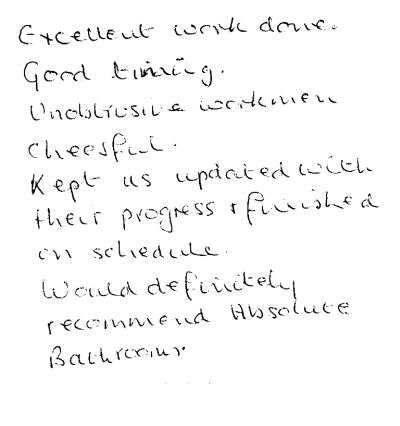 Excellent work done.
Good timing.
Unobtrusive workmen
cheerful.
Kept us updated with
their progress & finished
on schedule.
Would definitely
recommend Absolute
Bathrooms.